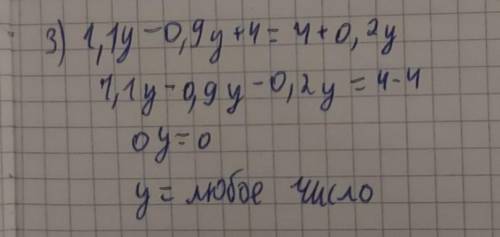 3) 1,1y - 0,9y + 4 = 4 + 0,2y
1,1y - 0,9y - 0,2y = 4 - 4
0y = 0
y = любое число